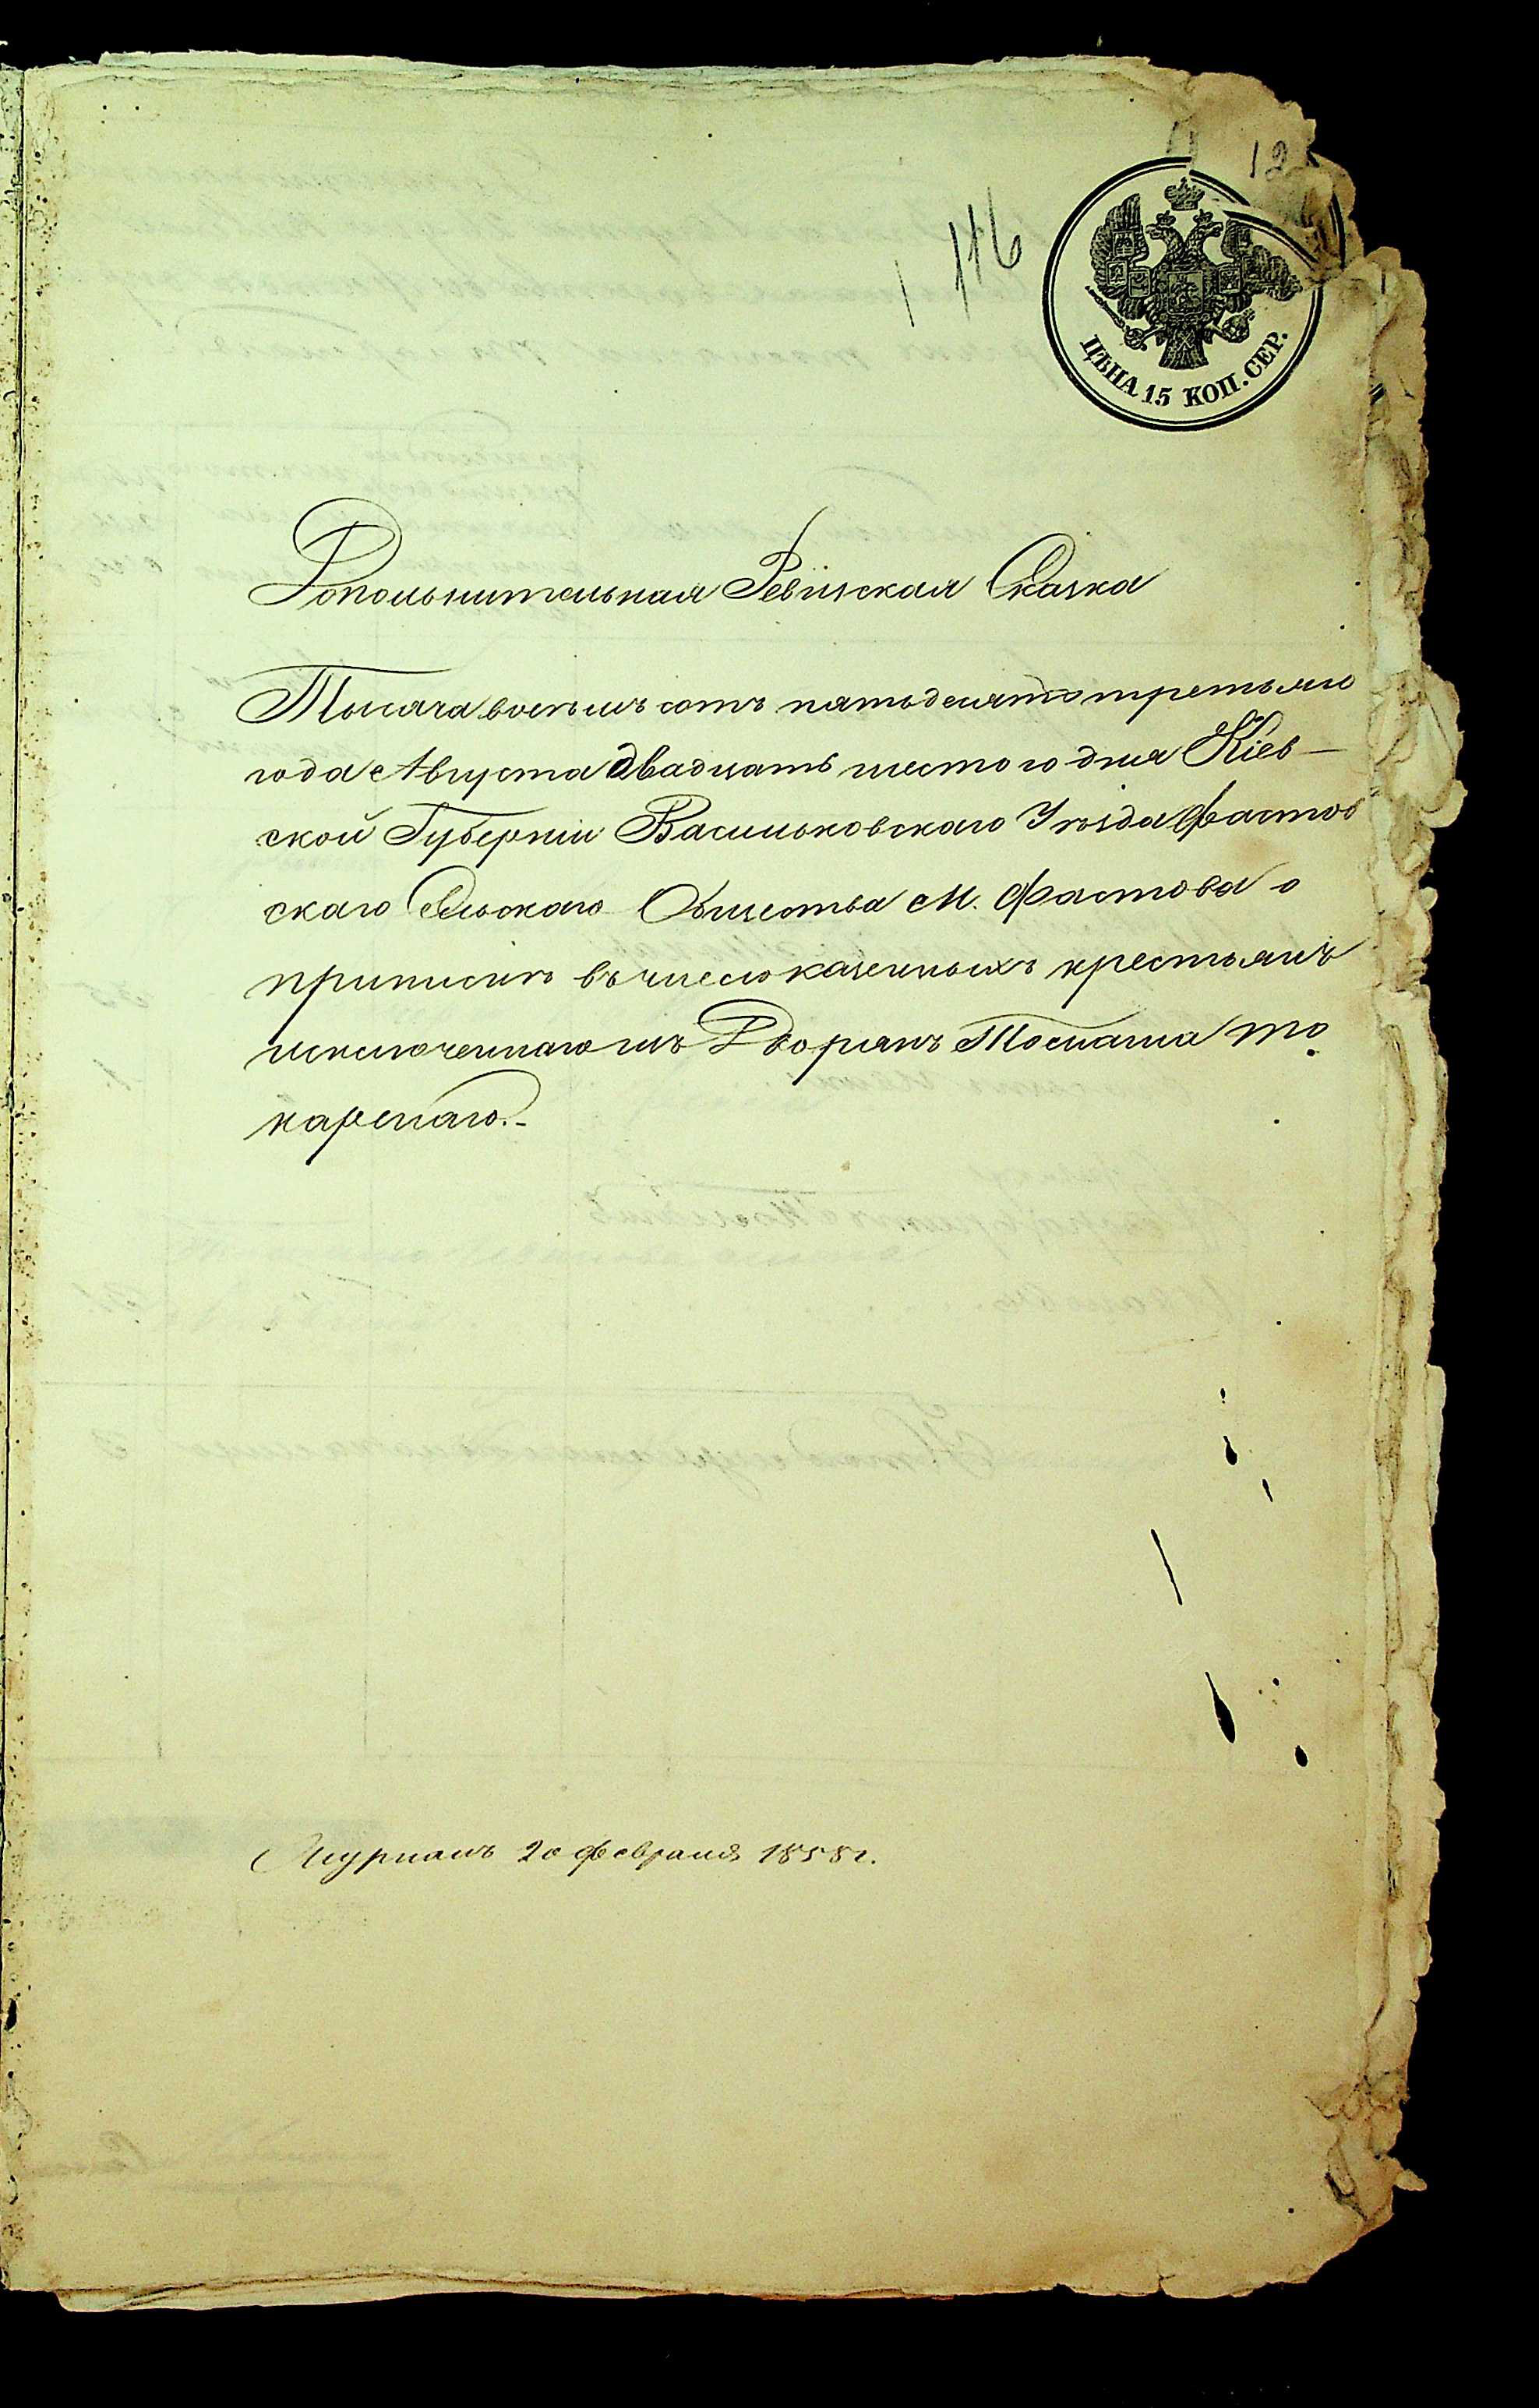 12
116
ЦѢНА 15 КОП. СЕР.
Дополнительная Ревизская Сказка
Тысяча восемь сотъ пятьдесятъ третьяго
года Августа двадцать шестого дня Кіев-
ской Губерніи Васильковскаго Уѣзда Фастов
скаго Сельскаго Общества М. Фастова о
приписке въ число казенныхъ крестьянъ
исключеннаго изъ Дворянъ Томаша То
карскаго.-
Журналъ 20 февраля 1858 г.